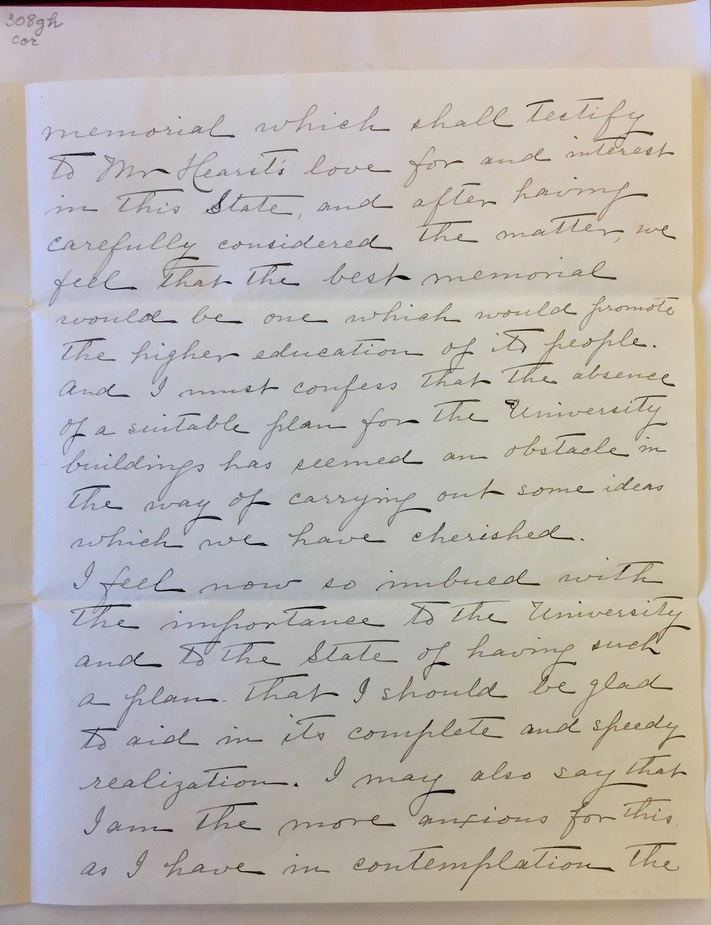 308gh
cor
memorial which shall testify
to Mr Hearst's love for and interest
in this State, and after having
carefully considered the matter, we
feel that the best memorial
would be one which would promote
the higher education of its people.
And I must confess that the absence
of a suitable plan for the University
buildings has seemed an obstacle in
the way of carrying out some ideas
which we have cherished.
I feel now so imbued with
the importance to the University
and to the State of having such
a plan that I should be glad
to aid in its complete and speedy
realization. I may also say that
I am the more anxious for this
as I have in contemplation the